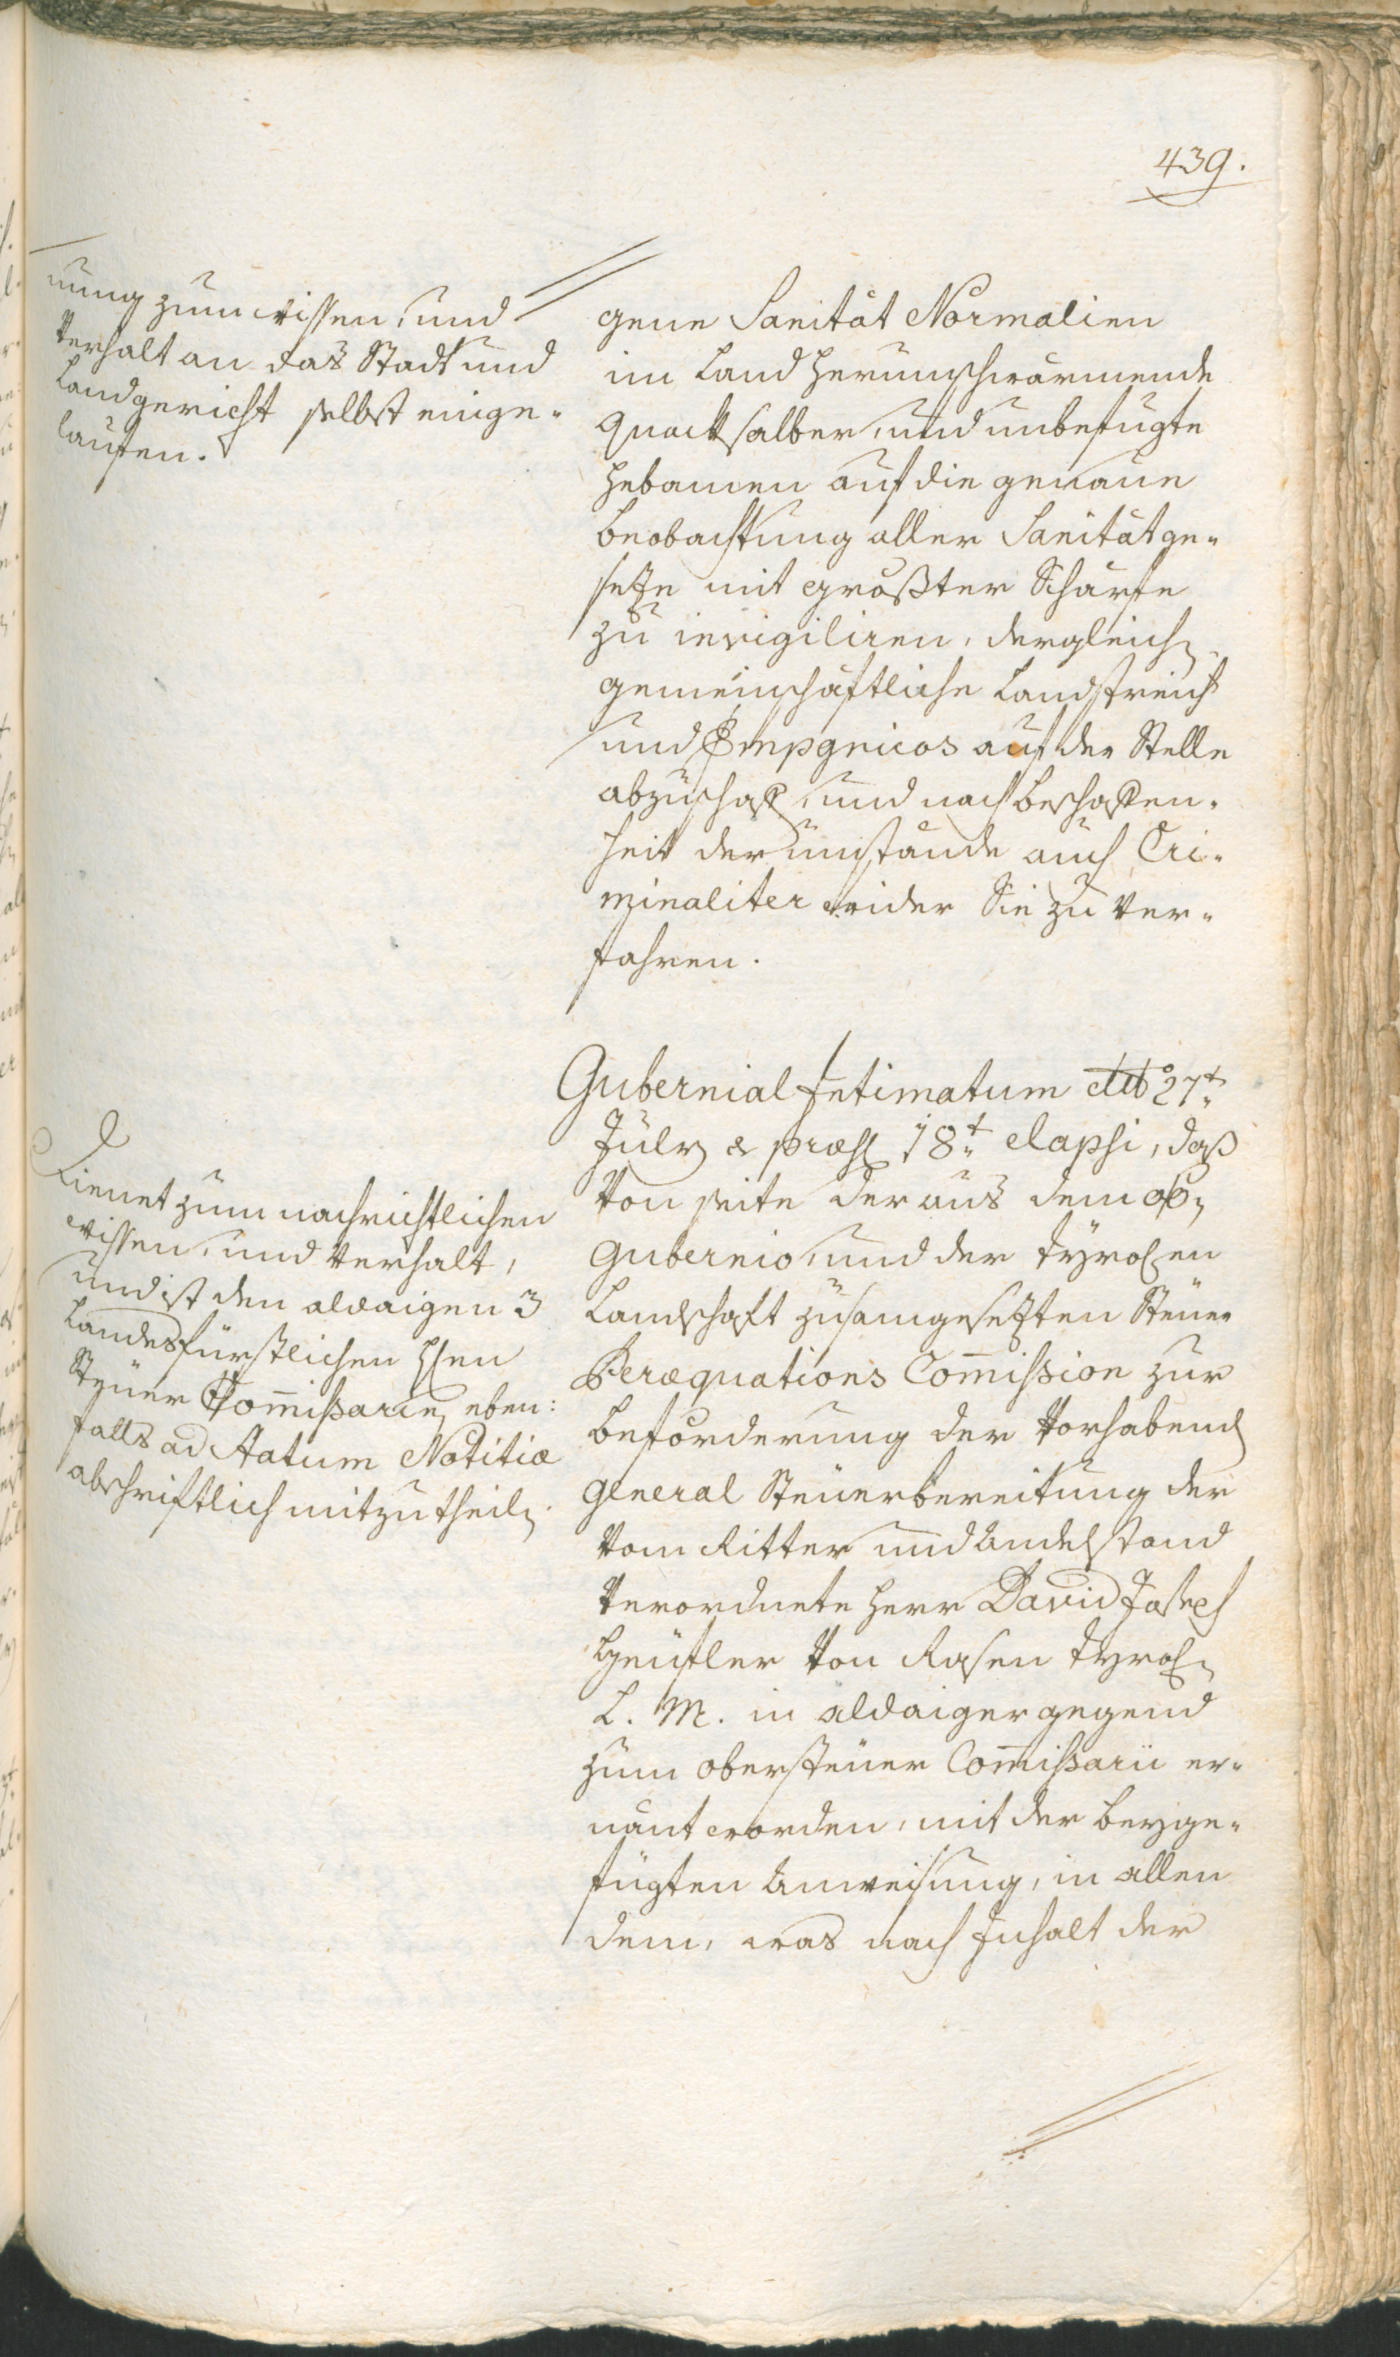 439.
nung zum wissen, und
Verhalt an das Stadt und
Landgericht selbst einge-
laufen.
gene Sanität Normalien
im Land herumschwärmende
Quacksalber, und unbefugte
Hebamen auf die genaue
beobachtung aller Sanitätge-
setze mit größter Schärfe
zu invigiliren, dergleich
gemeinschäftliche Landstreich
und Empyricos auf der Stelle
abzuschaff, und nach beschaffen-
heit der umstände auch Cri-
minaliter wider Sie zu ver-
fahren.
Gubernial Intimatum ddto 27t
July & præs 18t elapsi, daß
von seite der aus dem
Gubernio, und der tyrolen
Landschaft zusamgesetzten Steuer
Peræquations Com̅ission zur
beförderung der vorhabend
General Steuerbereitung der
vom Ritter und Andelstand
verordnete Herr David Joseph
von Rasen tyrol
L. M. in aldaiger gegend
zum obersteuer Com̅issarii er-
nant worden, mit der beyge-
fügten Anweisung, in allen
dem, was nach Inhalt der
Dienet zum nachrichtlichen
wissen, und Verhalt,
und ist den aldaigen 3
Landesfürstlichen
Steuer Com̅issarien eben:
falls ad statum Notitiæ
abschriftlich mitzutheil.